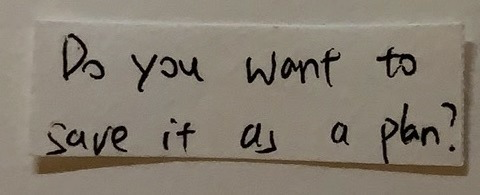 Do you want to
save it as a plan?